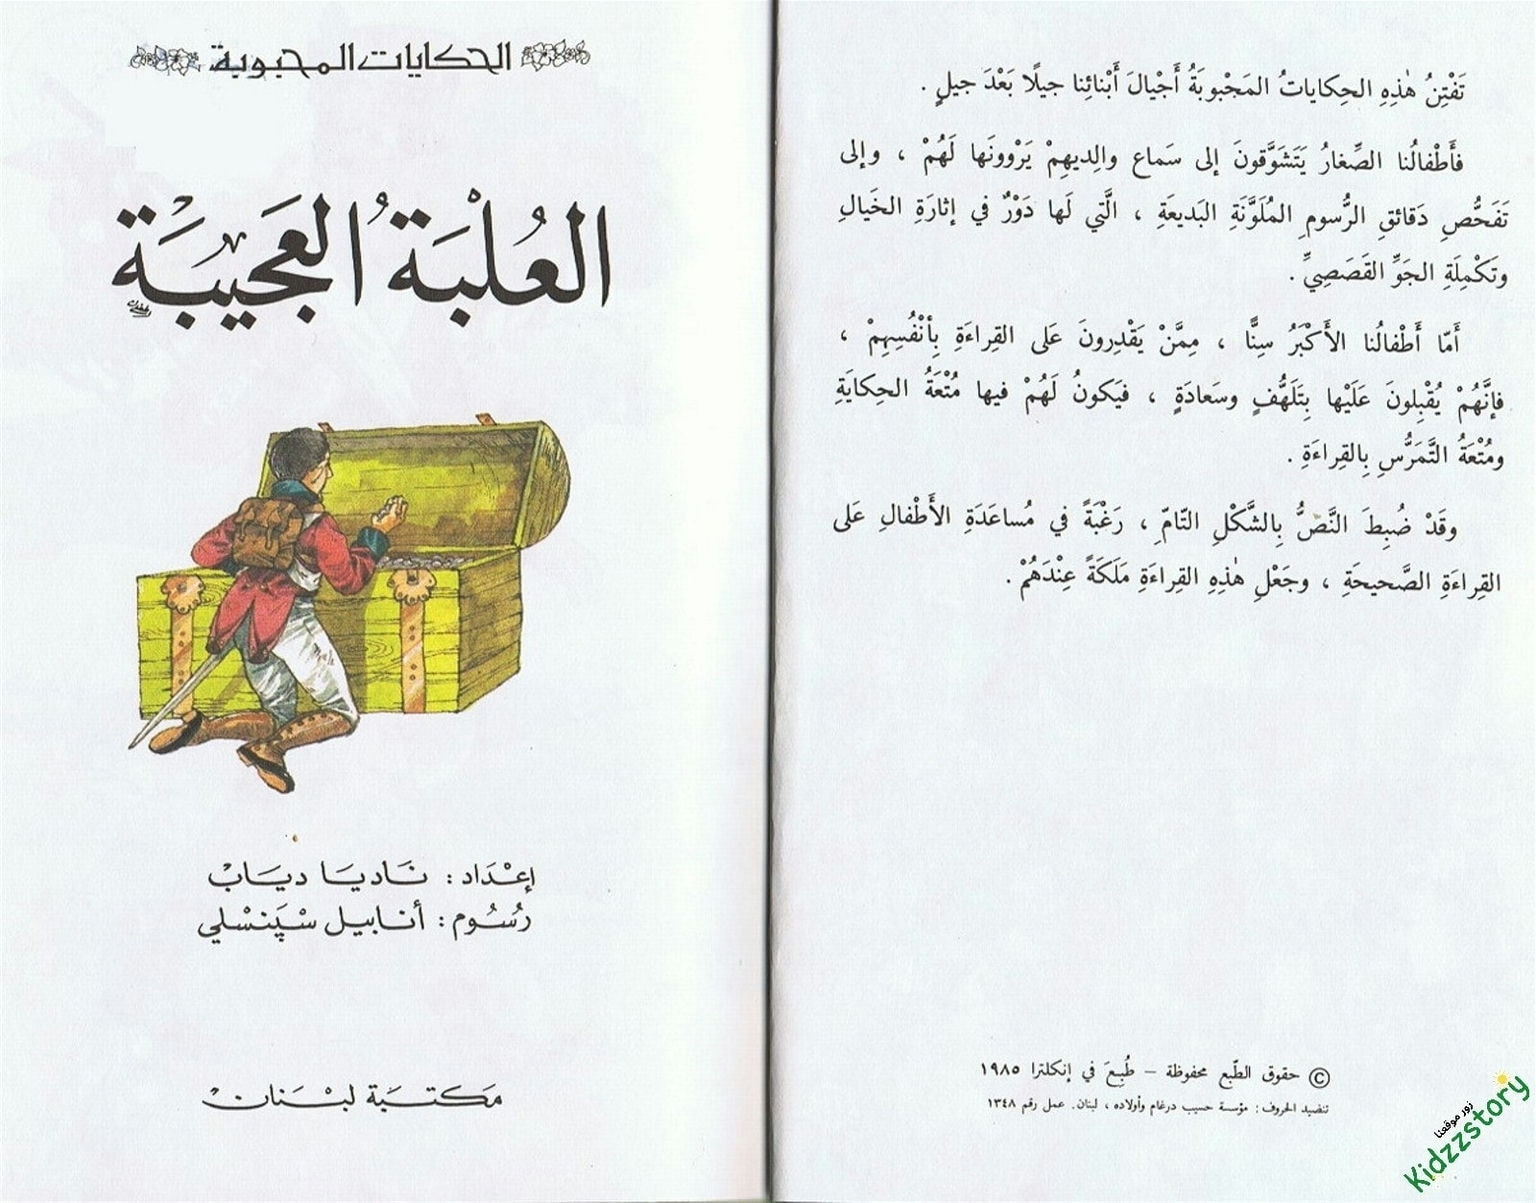 تَفْتِنُ هٰذِهِ الحِكاياتُ المَحْبوبَةُ أَجْيالَ أَبْنائِنا جيلًا بَعْدَ جيلٍ .
فَأَطْفالُنا الصِّغارُ يَتَشَوَّقونَ إلى سَماعِ والِديهِمْ يَرْوونَها لَهُمْ ، وإلى
تَفَحُّصِ دَقائقِ الرُّسومِ المُلَوَّنَةِ البَديعَةِ ، الَّتي لَها دَوْرٌ في إثارَةِ الخَيالِ
وتَكْمِلَةِ الجَوِّ القَصَصِيِّ .
أَمّا أَطْفالُنا الأَكْبَرُ سِنًّا ، مِمَّنْ يَقْدِرونَ عَلى القِراءَةِ بِأَنْفُسِهِمْ ،
فإنَّهُمْ يُقْبِلونَ عَلَيْها بِتَلَهُّفٍ وسَعادَةٍ ، فيَكونُ لَهُمْ فيها مُتْعَةُ الحِكايَةِ
ومُتْعَةُ التَّمَرُّسِ بِالقِراءَةِ .
وقَدْ ضُبِطَ النَّصُّ بِالشَّكْلِ التّامِّ ، رَغْبَةً في مُساعَدَةِ الأَطْفالِ عَلى
القِراءَةِ الصَّحيحَةِ ، وجَعْلِ هٰذِهِ القِراءَةِ مَلَكَةً عِنْدَهُمْ .
© حقوق الطّبع محفوظة – طُبِعَ في إنكلترا ١٩٨٥
تنضيد الحروف : مؤسسة حسيب درغام وأولاده ، لبنان. عمل رقم ١٣٤٨
زور موقعنا
Kidzzstory
الحكايات المحبوبة
العُلْبَةُ العَجيبَة
إعْدَاد : نَاديَا ديَابْ
رُسُوم : أنابيل سْپَنسْلي
مَكتبَة لبْنان